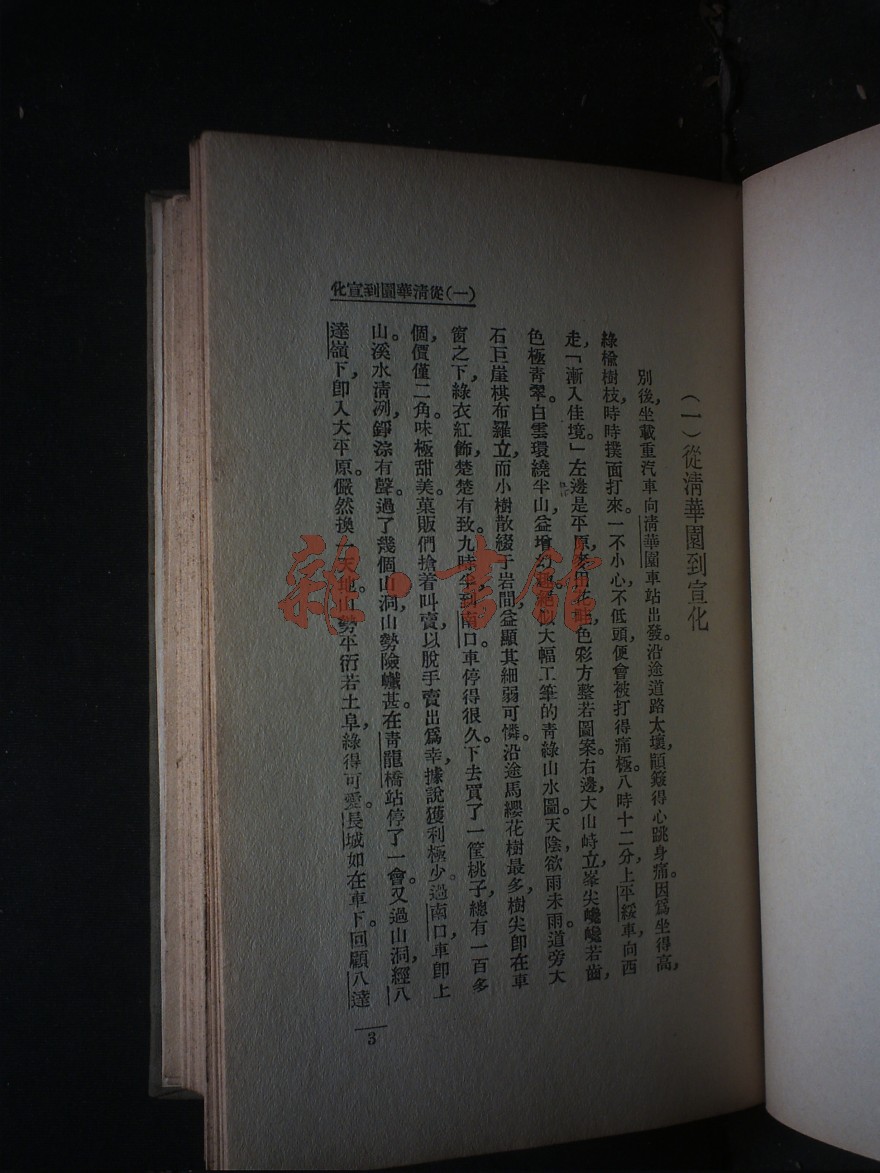 (一)從清華園到宣化
別後,坐載重汽車向清華園車站出發。沿途道路太壞,顛簸得心跳身痛。因爲坐得高,
綠楡樹枝,時時撲面打來。一不小心,不低頭,便會被打得痛極。八時十二分,上平綏車向西
走,「漸入佳境。」左邊是平原,麥田花畦,色彩方整若圖案。右邊大山峙立,峯尖巉巉若齒,
色極靑翠。白雲環繞半山,益增幻趣。絕似大幅工筆的靑綠山水圖。天陰欲雨未雨。道旁大
石巨崖,棋布羅立,而小樹散綴于岩間,益顯其細弱可憐。沿途馬纓花樹最多,樹尖卽在車
窗之下,綠衣紅飾,楚楚有致。九時半,到南口,車停得很久。下去買了一筐桃子,總有一百多
個,價僅二角,味極甜美。菓販們搶着叫賣,以脫手賣出爲幸,據說獲利極少。過南口,車卽上
山。溪水淸冽,錚淙有聲。過了幾個山洞,山勢險巇甚。在靑龍橋站停了一會。又過山洞,經八
達嶺下,卽入大平原。儼然換一天地。山勢平衍若土阜,綠得可愛。長城如在車下。回顧八達
(一)從清華園到宣化
3
雜·書館